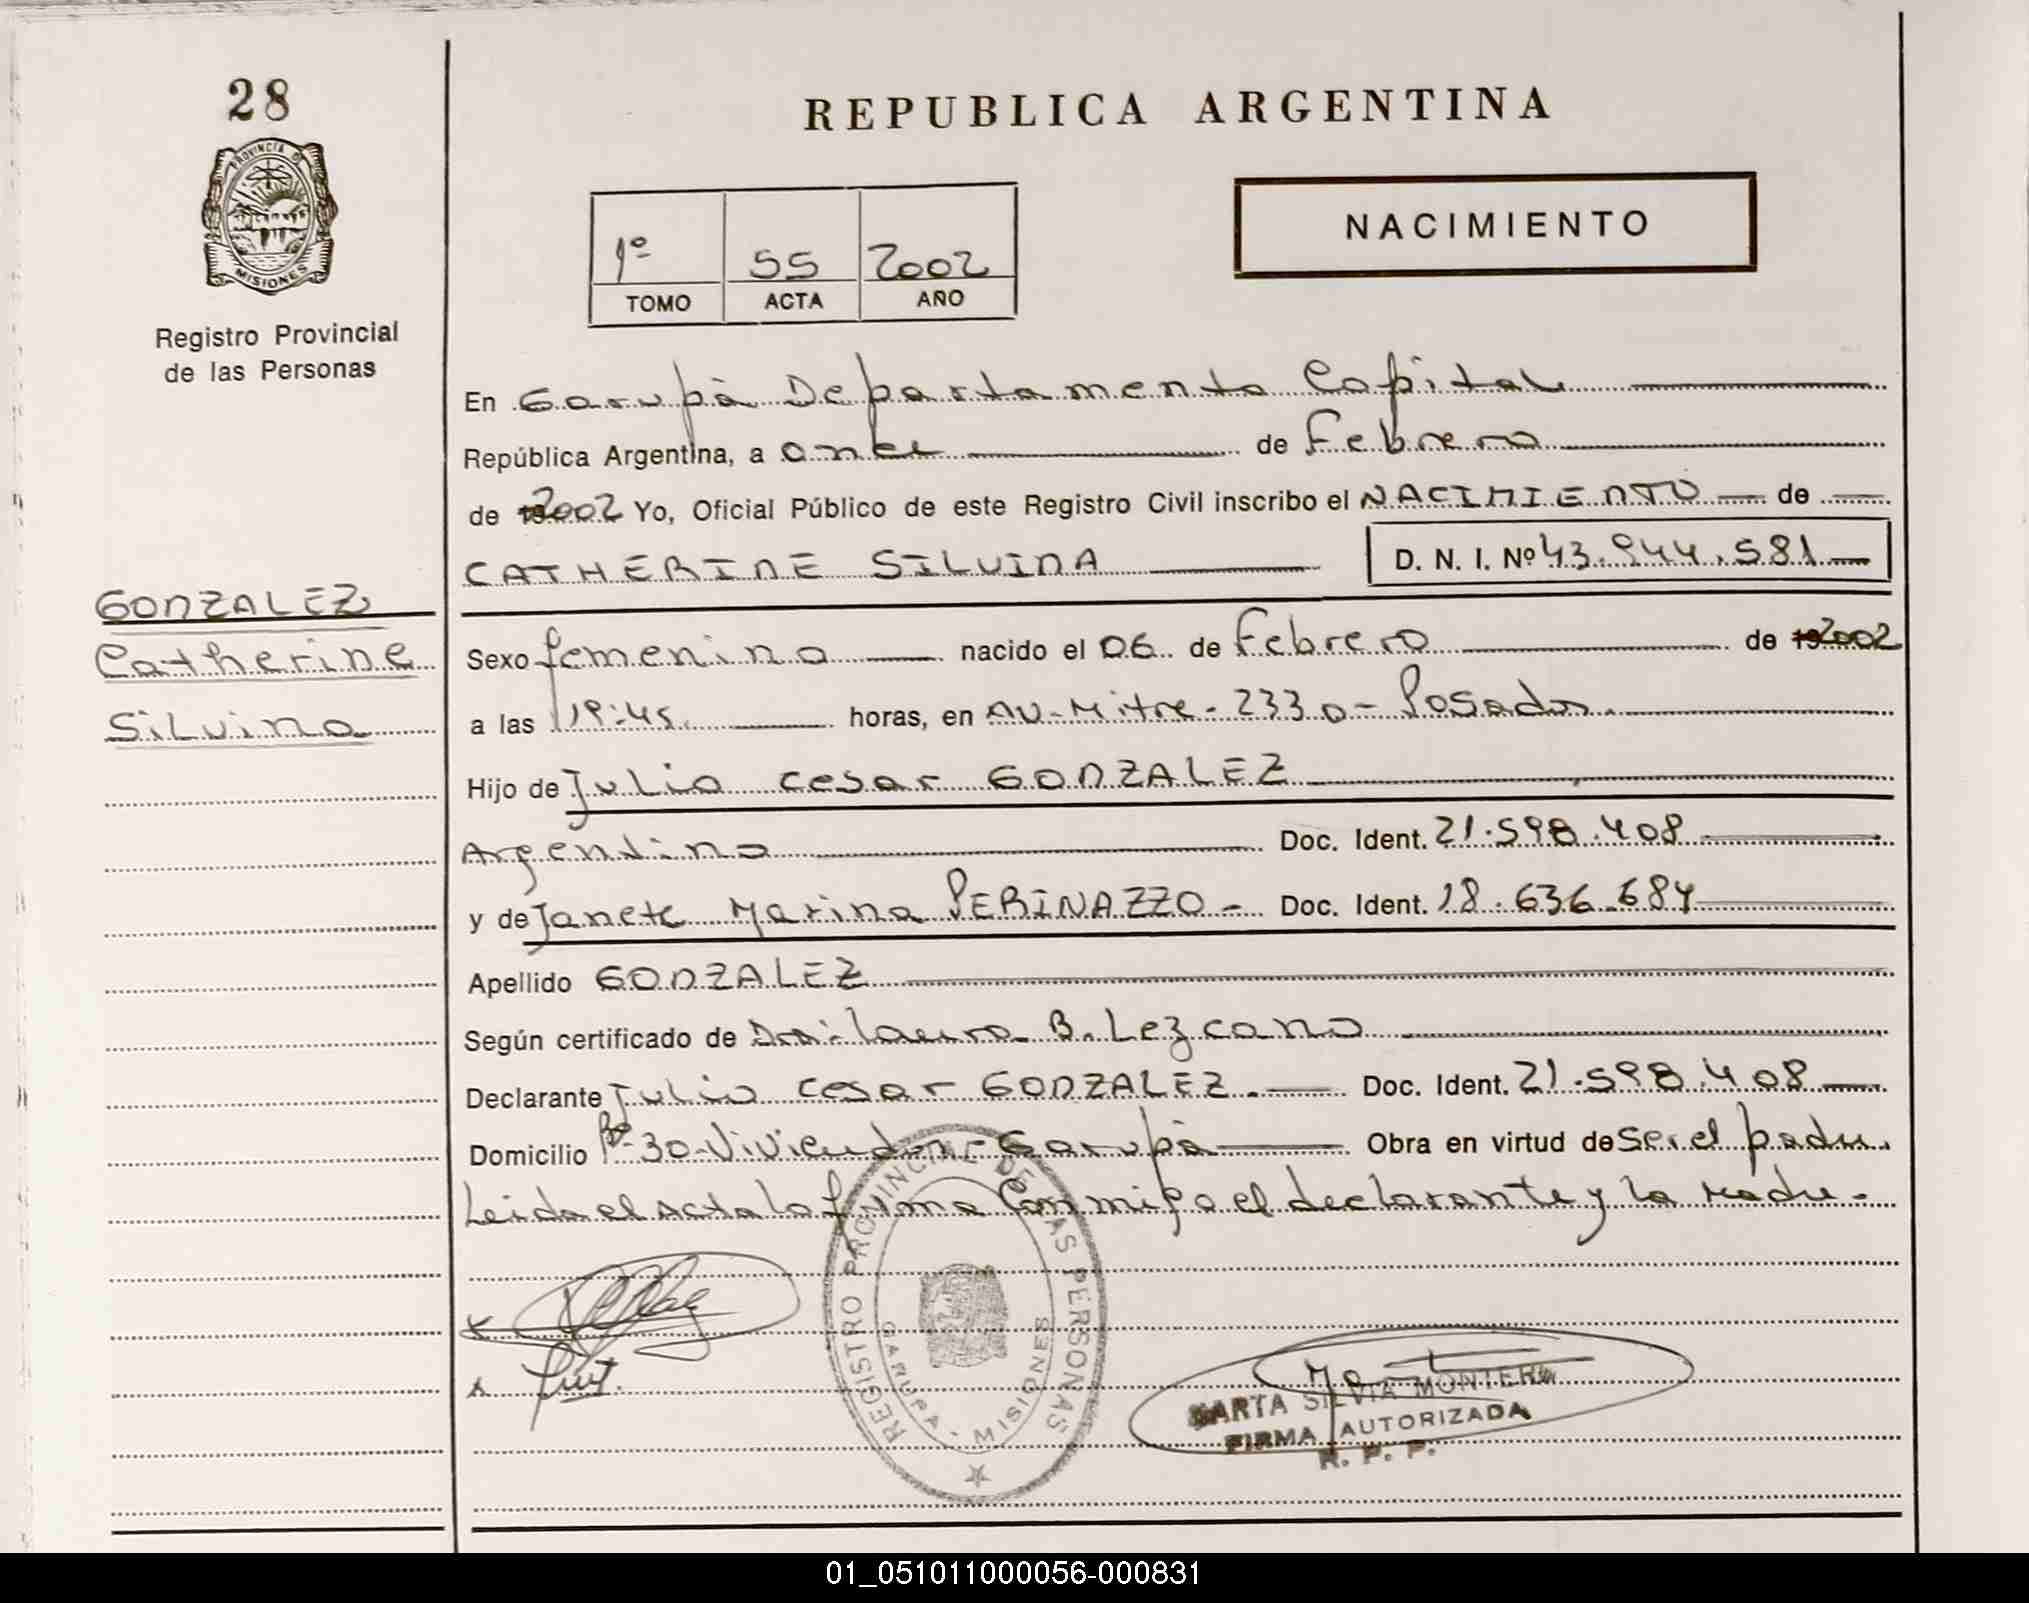 28
PROVINCIA D
MISIONES
Registro Provincial
de las Personas
REPUBLICA ARGENTINA
NACIMIENTO
1º 55 2002
TOMO ACTA AÑO
En Garupà Departamento Capital
República Argentina, a once de Febrero
de 2002 Yo, Oficial Público de este Registro Civil inscribo el NACIMIENTO de
CATHERINE SILVINA D. N. I. Nº 43.944.581
GONZALEZ
Catherine
Silvina
Sexo femenino nacido el 06 de Febrero de 2002
a las 19:45 horas, en AV-Mitre-2330-Posadas.
Hijo de Julio Cesar GONZALEZ
Argentino Doc. Ident. 21.598.408
y de Janete Marina PERINAZZO - Doc. Ident. 18.636.684
Apellido GONZALEZ
Según certificado de Dra: Laura B. Lezcano
Declarante Julio Cesar GONZALEZ. Doc. Ident. 21.598.408
Domicilio Bº-30-Viviendas-Garupà Obra en virtud de ser el padre.
Leida el acta la firma conmigo el declarante y la madre-
REGISTRO PROVINCIAL DE LAS PERSONAS
GARUPA - MISIONES
MARTA SILVIA MONTERO
FIRMA AUTORIZADA
R. P. P.
01_051011000056-000831